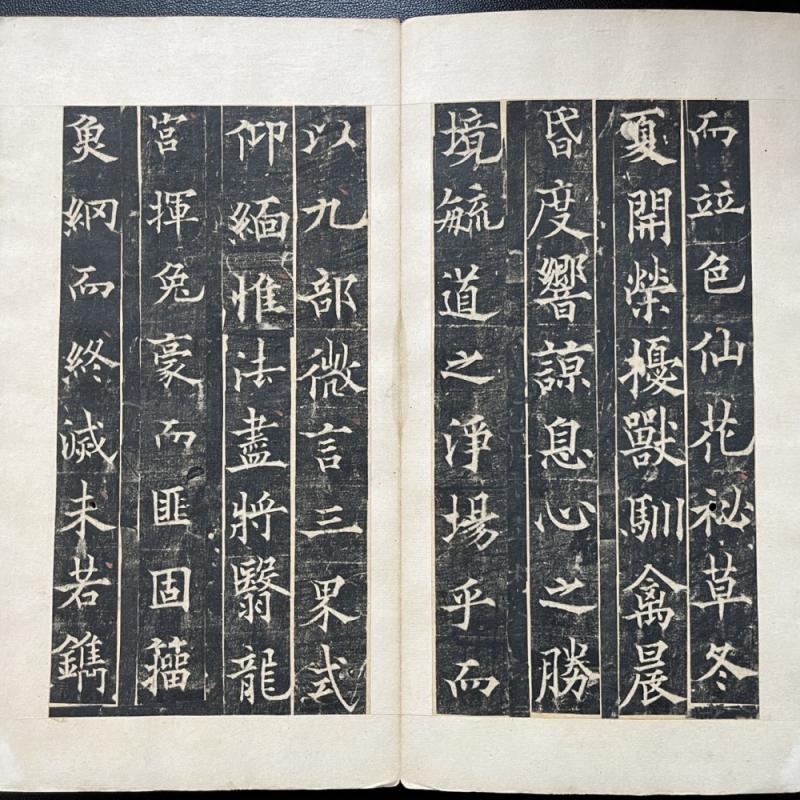 而竝色仙花祕草冬
夏開榮擾獸馴禽晨
昏度響諒息心之勝
境毓道之淨場乎而
以九部微言三果式
仰緬惟法盡將翳龍
宮揮兔豪而匪固籀
魚網而終滅未若鐫